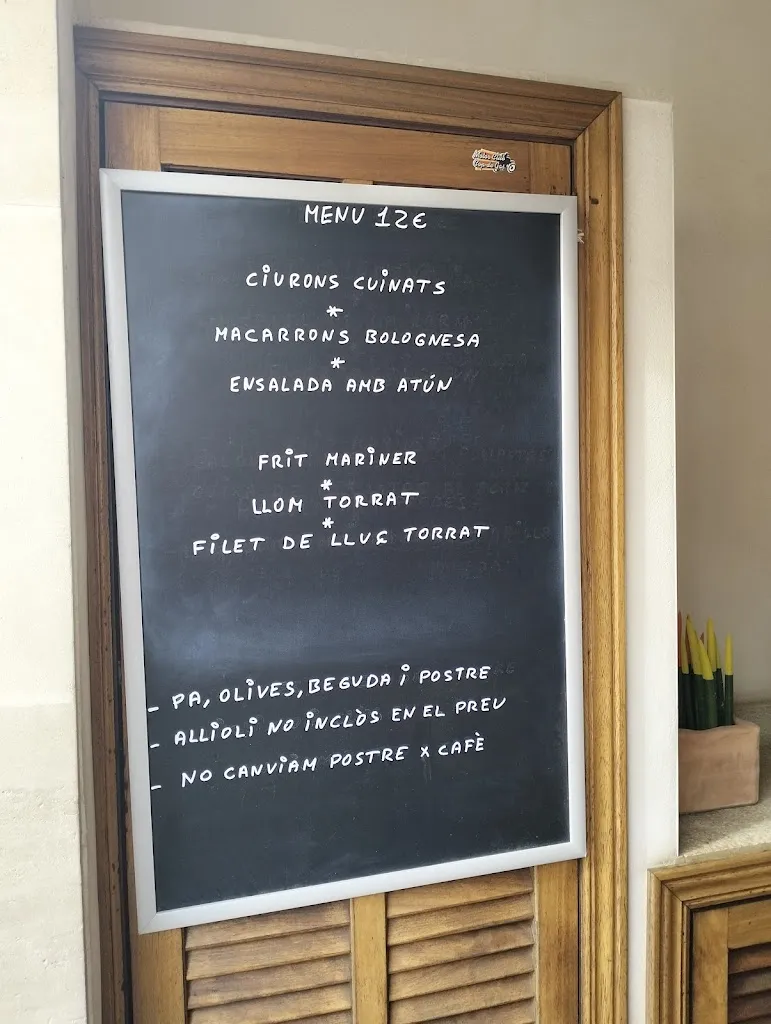 MENU 12€
CIURONS CUINATS
*
MACARRONS BOLOGNESA
*
ENSALADA AMB ATÚN
FRIT MARINER
*
LLOM TORRAT
*
FILET DE LLUÇ TORRAT
- PA, OLIVES, BEGUDA i POSTRE
- ALLIOLI NO INCLÒS EN EL PREU
- NO CANVIAM POSTRE x CAFÈ